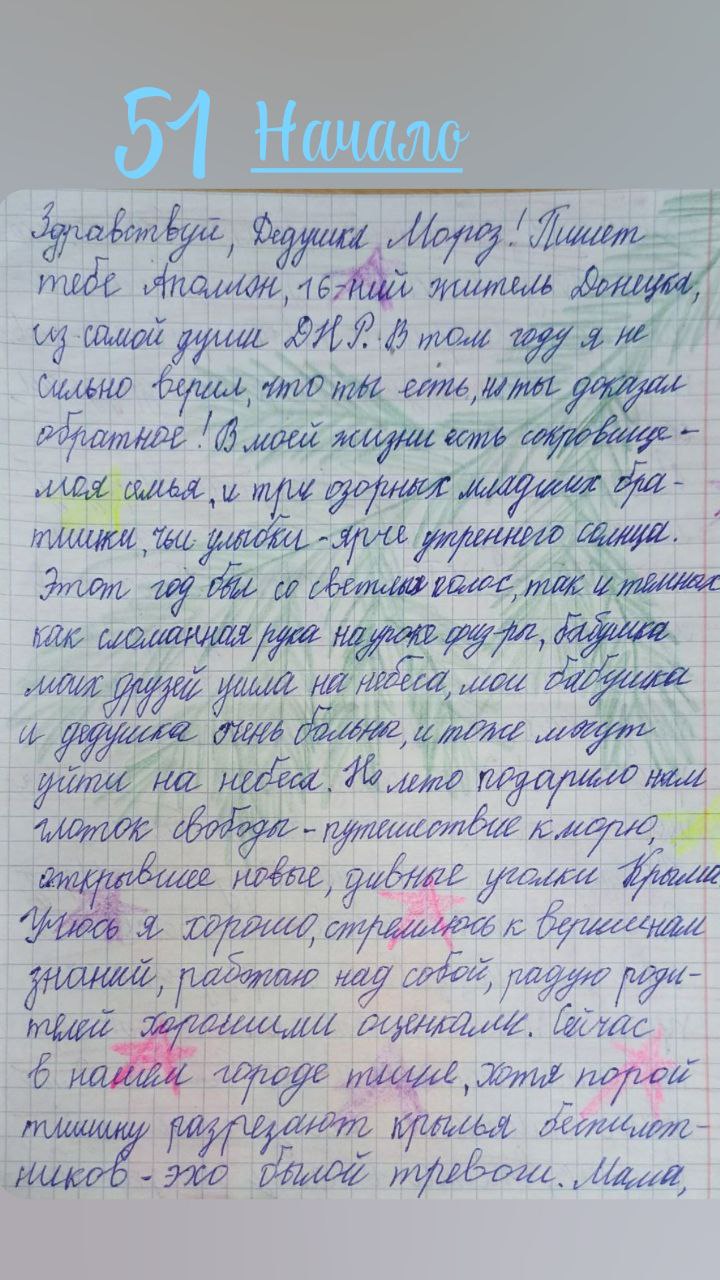 51 Начало
Здравствуй, Дедушка Мороз! Пишет
тебе Аполион, 16-ний житель Донецка,
из самой души ДНР. В том году я не
сильно верил, что ты есть, но ты доказал
обратное! В моей жизни есть сокровище -
моя семья, и три озорных младших бра-
тишки, чьи улыбки - ярче утреннего солнца.
Этот год был со светлых полос, так и темных
как сломанная рука на уроке физ-ры, бабушка
моих друзей ушла на небеса, мои бабушка
и дедушка очень больны, и тоже могут
уйти на небеса. Но лето подарило нам
глоток свободы - путешествие к морю,
открывшее новые, дивные уголки Крыма
Учюсь я хорошо, стремлюсь к вершинам
знаний, работаю над собой, радую роди-
телей хорошими оценками. Сейчас
в нашем городе тише, хотя порой
тишину разрезают крылья беспилот-
ников - эхо былой тревоги. Мама,